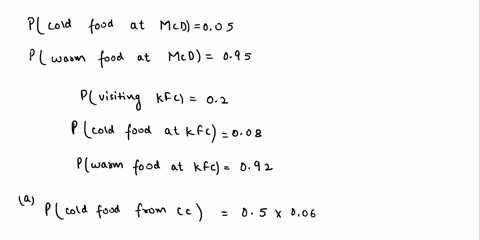 P(cold food at McD)=0.05
P(warm food at McD) = 0.95
P(visiting kfc) = 0.2
P(cold food at kfc)=0.08
P(warm food at kfc)= 0.92
(a) P(cold food from cc) = 0.5 x 0.06